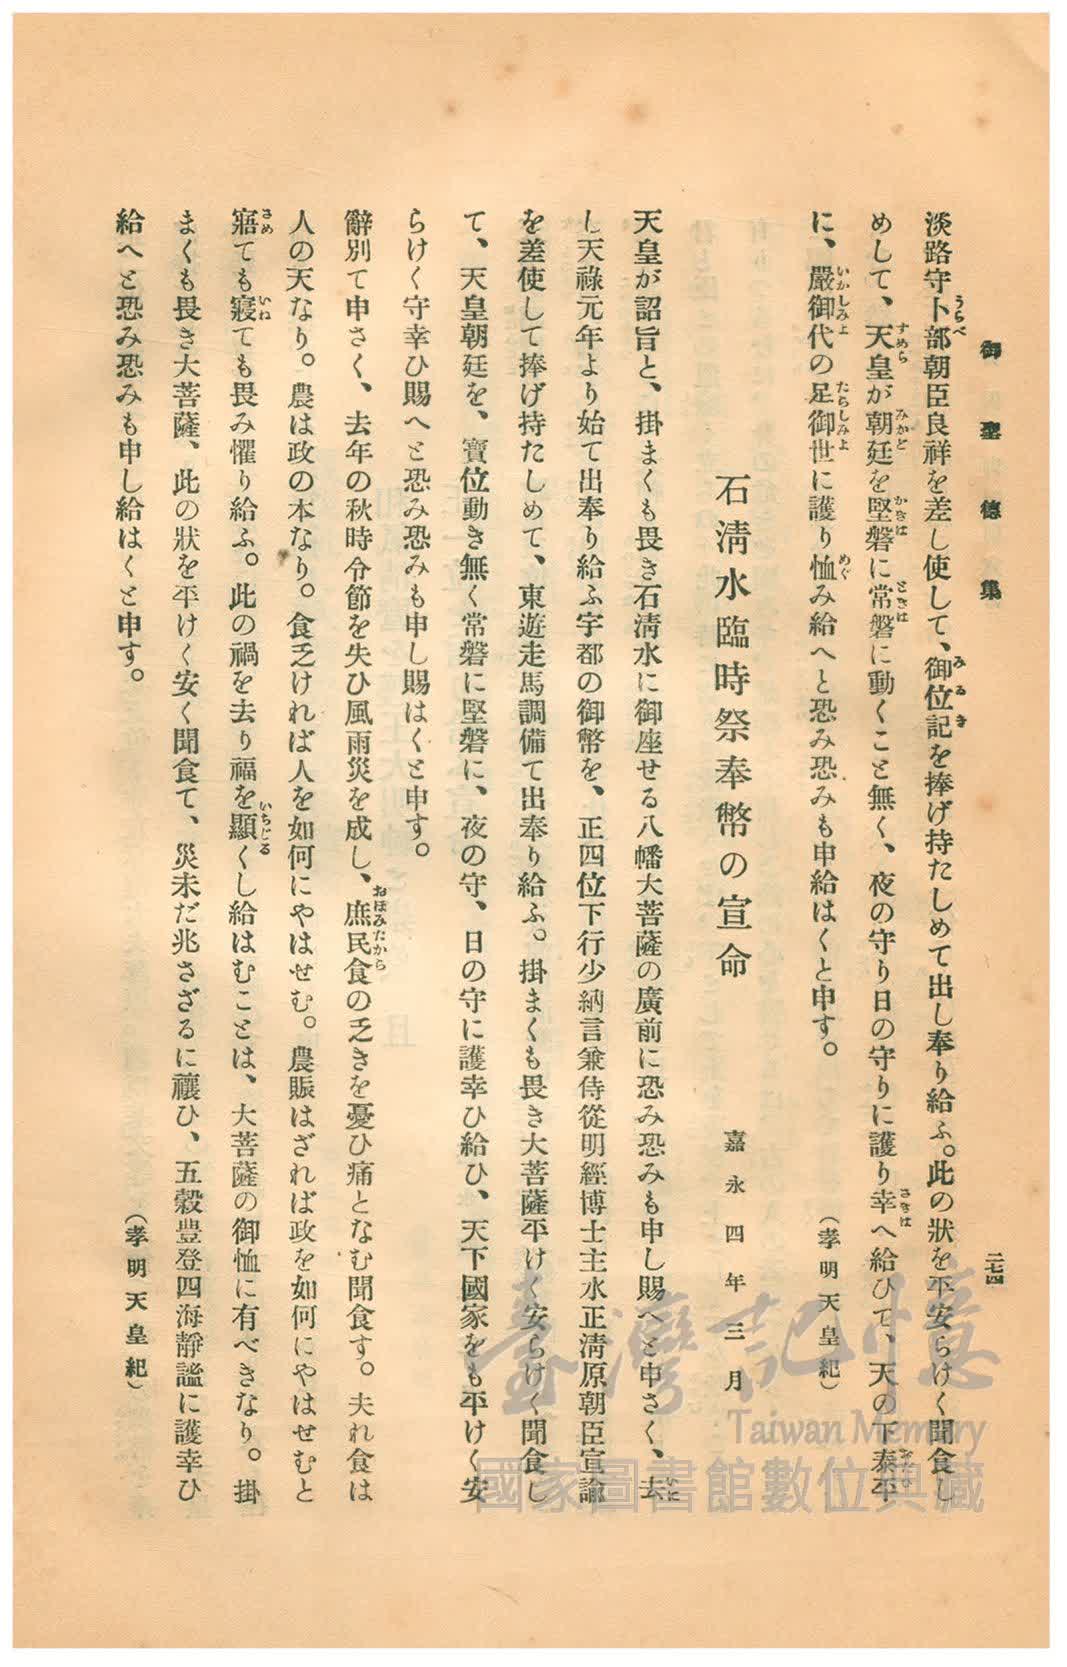 御聖德集
二七四
淡路守卜部朝臣良祥を差し使して、御位記を捧げ持たしめて出し奉り給ふ。此の狀を平安らけく聞食し
めして、天皇が朝廷を堅磐に常磐に動くこと無く、夜の守り日の守りに護り幸へ給ひて、天の下泰平
に、嚴御代の足御世に護り恤み給へと恐み恐みも申給はくと申す。
(孝明天皇紀)
石淸水臨時祭奉幣の宣命
嘉永四年三月
天皇が詔旨と、掛まくも畏き石淸水に御座せる八幡大菩薩の廣前に恐み恐みも申し賜へと申さく、去
し天祿元年より始て出奉り給ふ宇都の御幣を、正四位下行少納言兼侍從明經博士主水正淸原朝臣宣諭
を差使して捧げ持たしめて、東遊走馬調備て出奉り給ふ。掛まくも畏き大菩薩平けく安らけく聞食し
て、天皇朝廷を、寶位動き無く常磐に堅磐に、夜の守、日の守に護幸ひ給ひ、天下國家をも平けく安
らけく守幸ひ賜へと恐み恐みも申し賜はくと申す。
辭別て申さく、去年の秋時令節を失ひ風雨災を成し、庶民食の乏きを憂ひ痛となむ聞食す。夫れ食は
人の天なり。農は政の本なり。食乏ければ人を如何にやはせむ。農賑はざれば政を如何にやはせむと
寤ても寢ても畏み懼り給ふ。此の禍を去り福を顯くし給はむことは、大菩薩の御恤に有べきなり。掛
まくも畏き大菩薩、此の狀を平けく安く聞食て、災未だ兆さざるに禳ひ、五穀豐登四海靜謐に護幸ひ
給へと恐み恐みも申し給はくと申す。
(孝明天皇紀)
臺灣記憶
Taiwan Memory
國家圖書館數位典藏